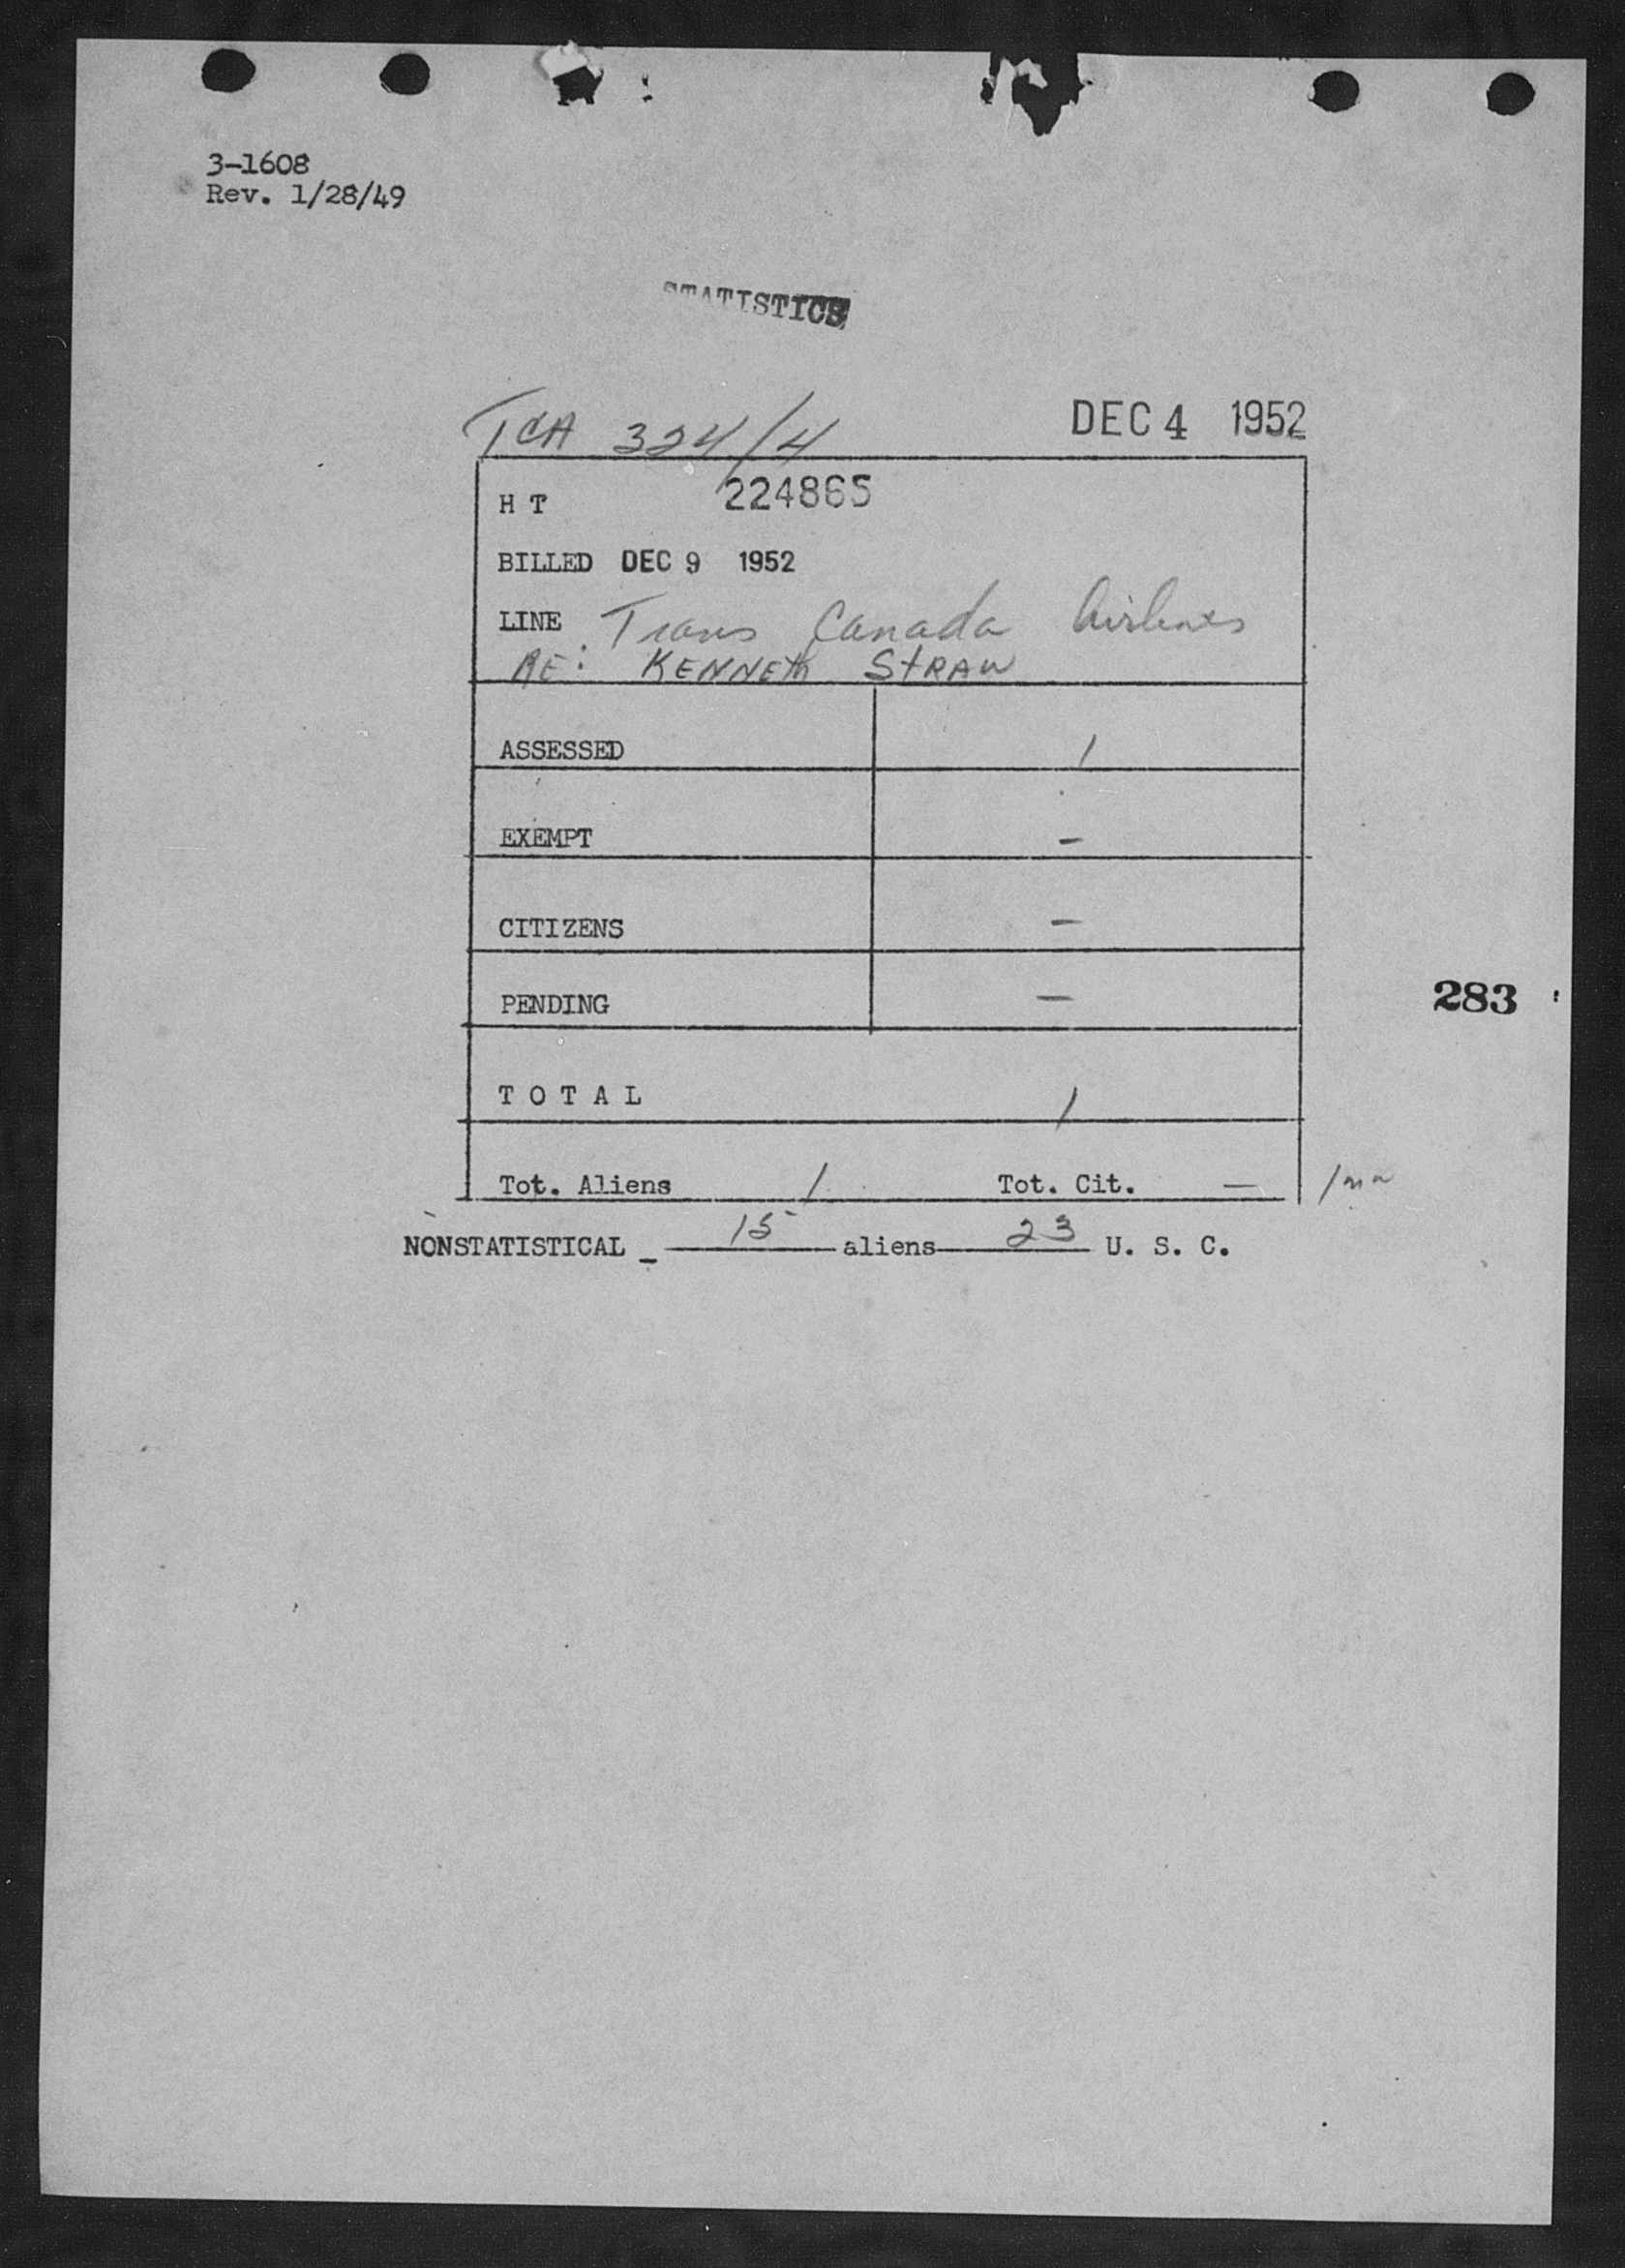 3-1608
Rev. 1/28/49
STATISTICS
TCA 324/4 DEC 4 1952
H T 224865
BILLED DEC 9 1952
LINE Trans Canada Airlines
RE: KENNETH STRAW
ASSESSED 1
EXEMPT -
CITIZENS -
PENDING -
283
T O T A L 1
Tot. Aliens 1 Tot. Cit. -
NONSTATISTICAL - 15 aliens 23 U. S. C.